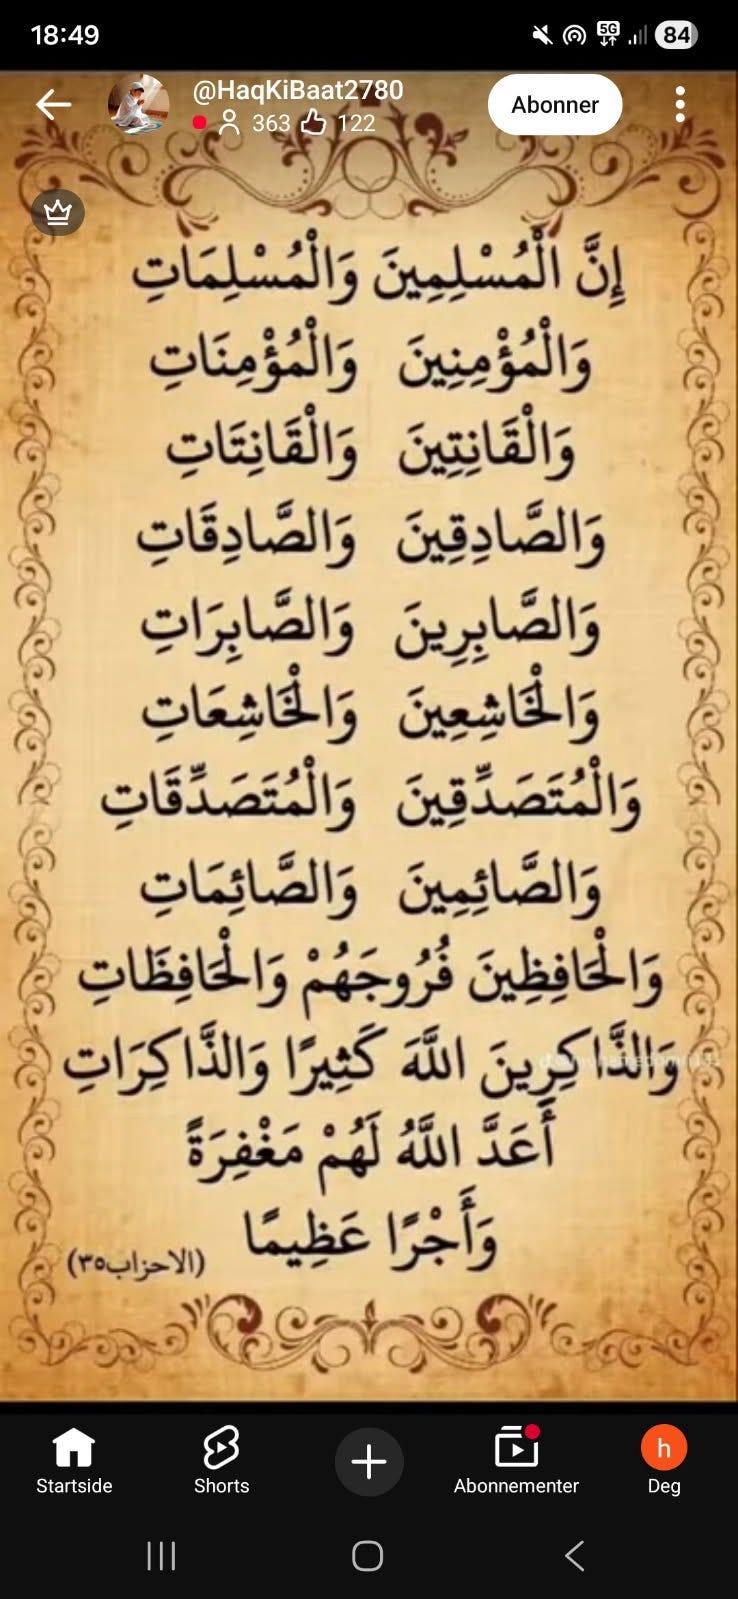 18:49
5G
84
@HaqKiBaat2780
363 122
Abonner
إِنَّ الْمُسْلِمِينَ وَالْمُسْلِمَاتِ
وَالْمُؤْمِنِينَ وَالْمُؤْمِنَاتِ
وَالْقَانِتِينَ وَالْقَانِتَاتِ
وَالصَّادِقِينَ وَالصَّادِقَاتِ
وَالصَّابِرِينَ وَالصَّابِرَاتِ
وَالْخَاشِعِينَ وَالْخَاشِعَاتِ
وَالْمُتَصَدِّقِينَ وَالْمُتَصَدِّقَاتِ
وَالصَّائِمِينَ وَالصَّائِمَاتِ
وَالْحَافِظِينَ فُرُوجَهُمْ وَالْحَافِظَاتِ
وَالذَّاكِرِينَ اللَّهَ كَثِيرًا وَالذَّاكِرَاتِ
أَعَدَّ اللَّهُ لَهُمْ مَغْفِرَةً
وَأَجْرًا عَظِيمًا
(الاحزاب٣٥)
Startside
Shorts
Abonnementer
h
Deg